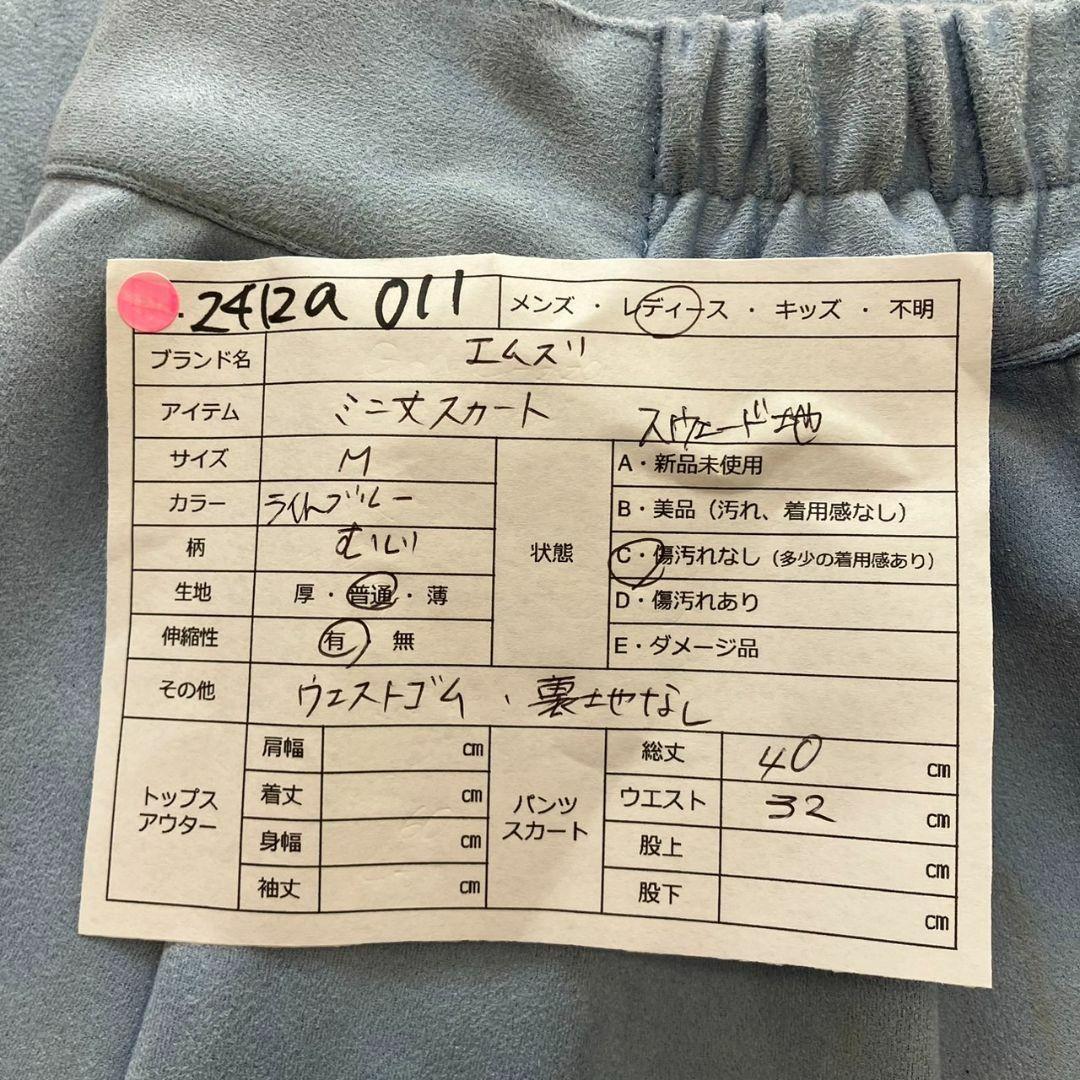 2412a 011
メンズ ・ レディース ・ キッズ ・ 不明
ブランド名 エムズ
アイテム ミニ丈スカート スウェード地
サイズ M
カラー ライトブルー
柄 むじ
生地 厚・普通・薄
伸縮性 有・無
状態
A・新品未使用
B・美品（汚れ、着用感なし）
C・傷汚れなし（多少の着用感あり）
D・傷汚れあり
E・ダメージ品
その他 ウエストゴム、裏地なし
トップス
アウター
肩幅 cm
着丈 cm
身幅 cm
袖丈 cm
パンツ
スカート
総丈 40 cm
ウエスト 32 cm
股上 cm
股下 cm